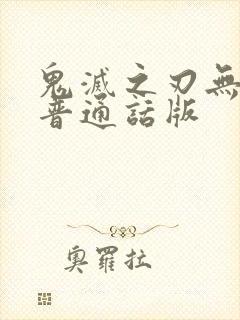 鬼滅之刃無
普通話版
奧羅拉